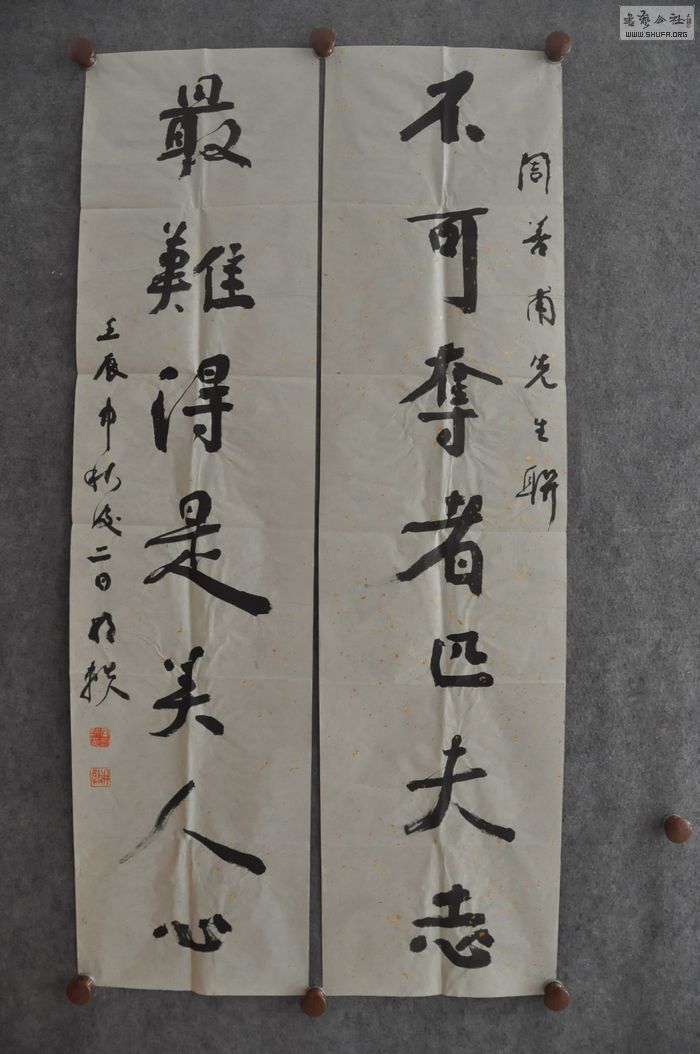 周善甫先生聯
不可奪者匹夫志
最難得是美人心
壬辰中秋後二日
書藝公社
WWW.SHUFA.ORG